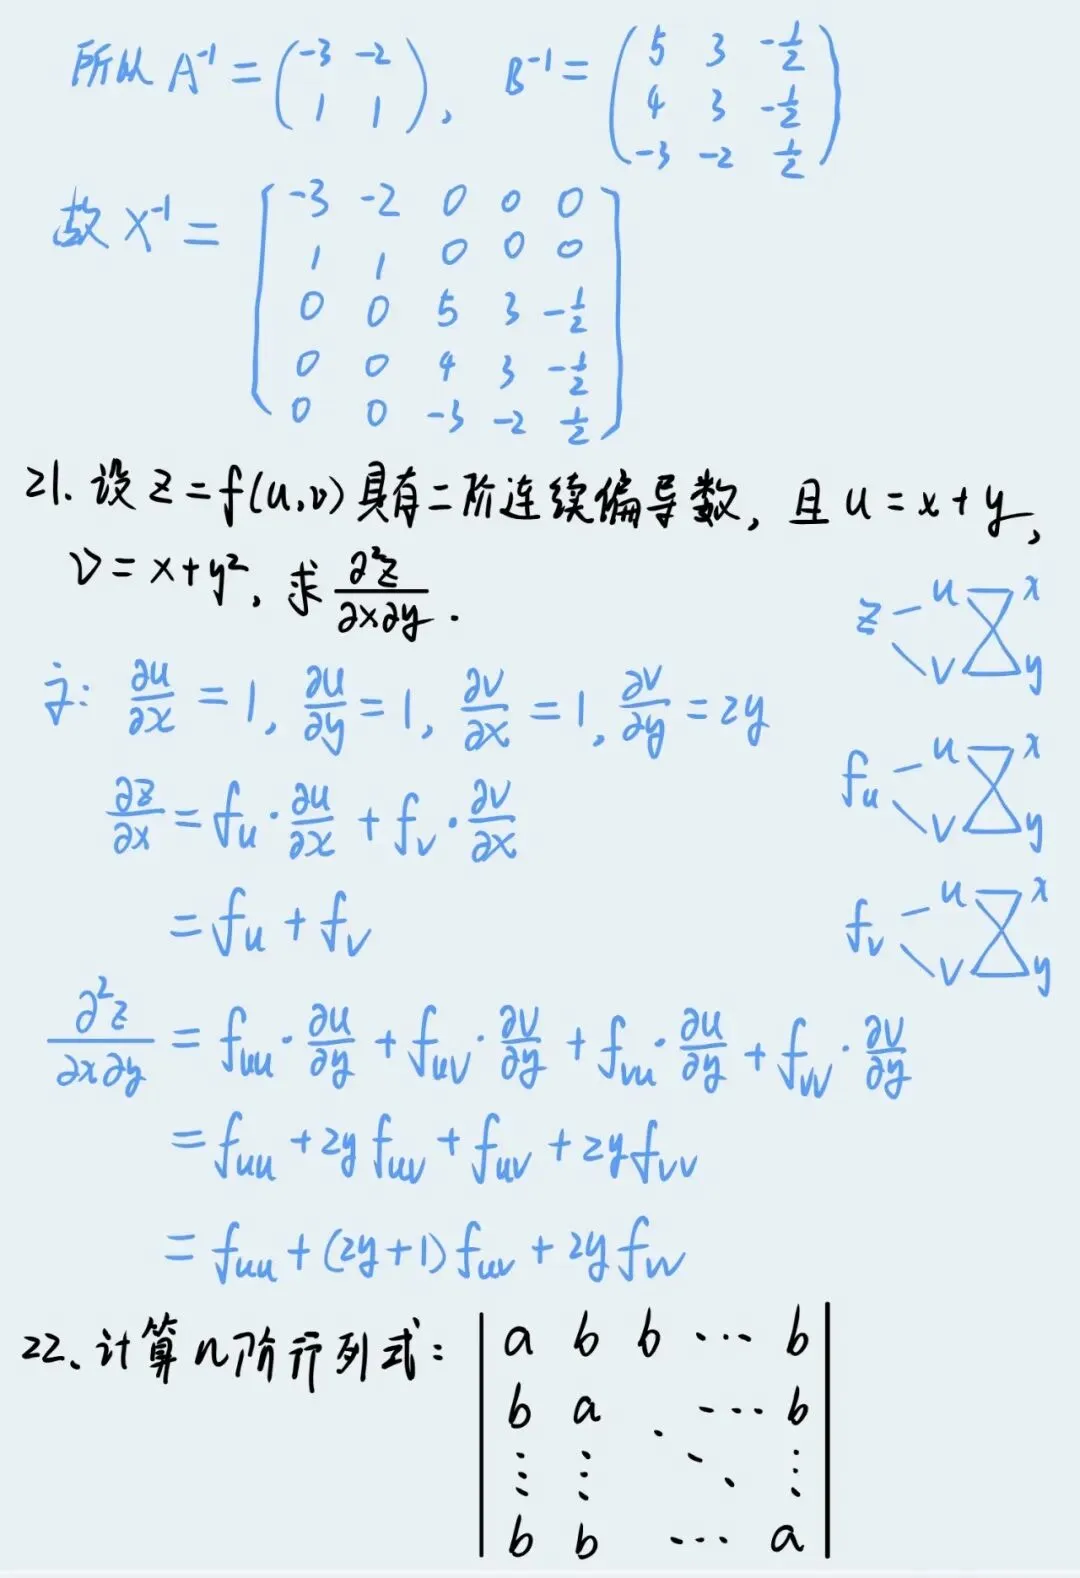 所以 A⁻¹ = (-3 -2
1 1), B⁻¹ = (5 3 -1/2
4 3 -1/2
-3 -2 1/2)
故 X⁻¹ = [-3 -2 0 0 0
1 1 0 0 0
0 0 5 3 -1/2
0 0 4 3 -1/2
0 0 -3 -2 1/2]
21. 设 z = f(u,v) 具有二阶连续偏导数, 且 u = x + y,
v = x + y², 求 ∂²z/∂x∂y.
z u x
v y
∂u/∂x = 1, ∂u/∂y = 1, ∂v/∂x = 1, ∂v/∂y = 2y
f_u u x
v y
∂z/∂x = f_u · ∂u/∂x + f_v · ∂v/∂x
= f_u + f_v
f_v u x
v y
∂²z/∂x∂y = f_uu · ∂u/∂y + f_uv · ∂v/∂y + f_vu · ∂u/∂y + f_vv · ∂v/∂y
= f_uu + 2y f_uv + f_uv + 2y f_vv
= f_uu + (2y+1) f_uv + 2y f_vv
22. 计算 n 阶行列式: | a b b ⋯ b |
| b a ⋱ ⋯ b |
| ⋮ ⋮ ⋱ ⋮ |
| b b ⋯ a |